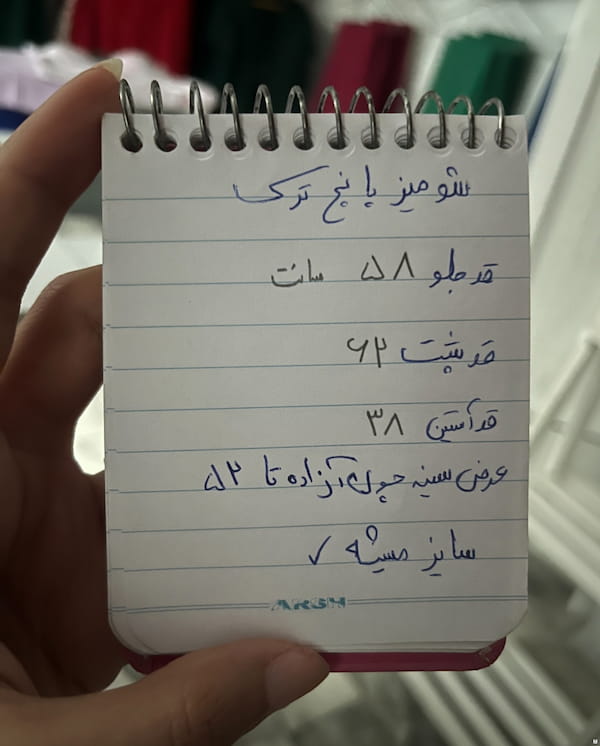 شومیز پانچ ترک
قد جلو ۵۸ سانت
قد پشت ۶۲
قد آستین ۳۸
عرض سینه چون آزاده تا ۵۲
سایز میشه ✓
ARSH